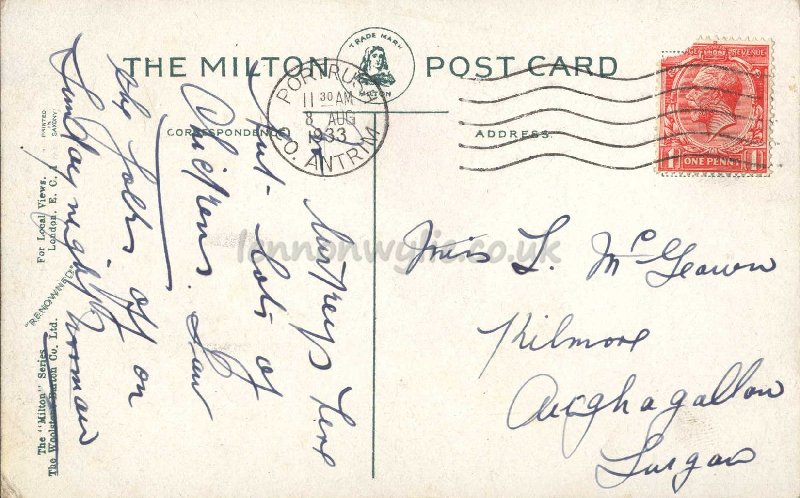 THE MILTON
TRADE MARK
MILTON
POST CARD
CORRESPONDENCE
ADDRESS
PORTRUSH
11 30 AM
8 AUG
1933
CO. ANTRIM
POSTAGE REVENUE
ONE PENNY
1 1
here
but - lots of
Chickens. Saw
the folks off on
Sunday night
Norman
Miss L. McGeown
Kilmore
Aughagallon
Lurgan
PRINTED IN SAXONY
For Local Views.
London, E. C. 1
"RENOWNED"
The "Milton" Series
The Woolstone Bros. Co. Ltd.
lennonwylie.co.uk